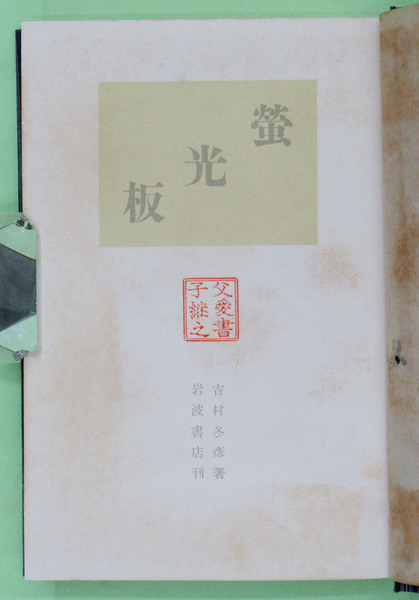 螢光板
父愛書
子継之
吉村冬彦著
岩波書店刊